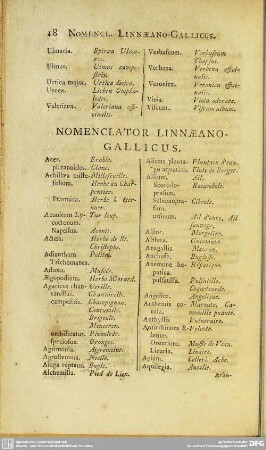 18 NOMENCL. LINNÆANO-GALLICUS.
Ulmaria. Spiræa Ulmaria.
Ulmus. Ulmus campestris.
Urtica major. Urtica dioica.
Usnea. Lichen
Valeriana. Valeriana officinalis.
Verbascum. Verbascum Thapsus.
Verbena. Verbena officinalis.
Veronica. Veronica officinalis.
Viola. Viola odorata.
Viscum. Viscum album.
NOMENCLATOR LINNÆANO-
GALLICUS.
Acer. Erable.
platanoides. Plane.
Achillæa millefolium. Millefeuille.
Herbe au Charpentier.
Ptarmica. Herbe à éternuer.
Aconitum Lycoctonum. Tue loup.
Napellus. Aconit.
Actæa. Herbe de St. Christophe.
Adianthum Trichomanes.
Adoxa.
Ægopodium. Herbe
Agaricus chantarellus. Chanterelle.
campestris. Champignon,
Mouceron.
speciosus. Oronges.
Agrimonia. Agremoine.
Agrostemma. Nielle.
Aiuga reptans. Bugle.
Alchemilla. Pied de Lion.
Alisma plantago aquatica. Plantain d'eau,
Flute de Berger.
Allium. Ail.
Scorodoprasum. Rocambole.
Schœnoprasum. Cibule.
ursinum. Ail d'ours, Ail sauvage.
Althæa. Guimauve.
Anagallis. Mouron.
Anchusa. Buglosse.
Anemone hepatica. Hépatique.
pulsatilla. Pulsatille,
Coquelourde.
Angelica. Angelique.
Anthemis cotula. Maroute, Camomille puante.
Anthyllis. Vulneraire.
Antirrhinum
Orontium. Muffle de Veau.
Linaria. Linaire.
Apium. Celleri. Ache.
Aquilegia. Ancolie.